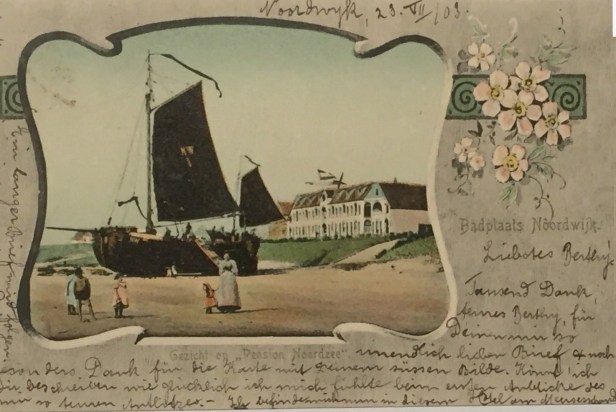 Noordwijk, 23. VII / 03.
Badplaats Noordwijk.
Liebstes Berthy.
Tausend Dank,
Berthy, für
Deinen so
Gezicht op "Pension Noordzee"
unendlich lieben Brief & noch
besonders Dank für die Karte mit Deinem süssen Bilde. Könnt' ich
Dir beschreiben wie glücklich ich mich fühlte beim ersten Anblicke des
Ich befinde mich in diesem Hotel am
Ein langer Brief wird folgen.